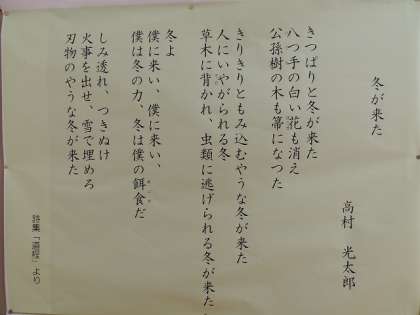 冬が来た
高村 光太郎
きっぱりと冬が来た
八つ手の白い花も消え
公孫樹の木も箒になった
きりきりともみ込むやうな冬が来た
人にいやがられる冬
草木に背かれ、虫類に逃げられる冬が来た
冬よ
僕に来い、僕に来い、
僕は冬の力、冬は僕の餌食だ
しみ透れ、つきぬけ
火事を出せ、雪で埋めろ
刃物のやうな冬が来た
詩集「道程」より